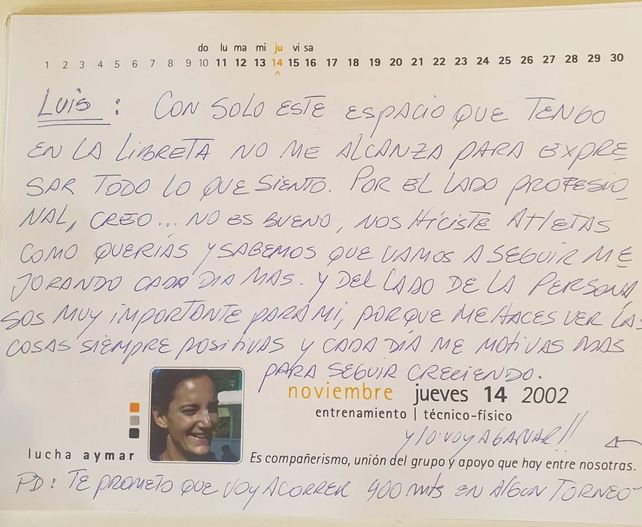 do lu ma mi ju vi sa
1 2 3 4 5 6 7 8 9 10 11 12 13 14 15 16 17 18 19 20 21 22 23 24 25 26 27 28 29 30
^
LUIS: CON SOLO ESTE ESPACIO QUE TENGO
EN LA LIBRETA NO ME ALCANZA PARA EXPRE
SAR TODO LO QUE SIENTO. POR EL LADO PROFESIO-
NAL, CREO... NO ES BUENO, NOS HICISTE ATLETAS
COMO QUERIAS Y SABEMOS QUE VAMOS A SEGUIR ME
JORANDO CADA DIA MAS. Y DEL LADO DE LA PERSONA
SOS MUY IMPORTANTE PARA MI, PORQUE ME HACES VER LAS
COSAS SIEMPRE POSITIVAS Y CADA DÍA ME MOTIVAS MAS
PARA SEGUIR CRECIENDO.
noviembre jueves 14 2002
entrenamiento | técnico-físico
Y LO VOY A GANAR!!
lucha aymar
Es compañerismo, unión del grupo y apoyo que hay entre nosotras.
PD: TE PROMETO QUE VOY A CORRER 400 mts EN ALGUN TORNEO